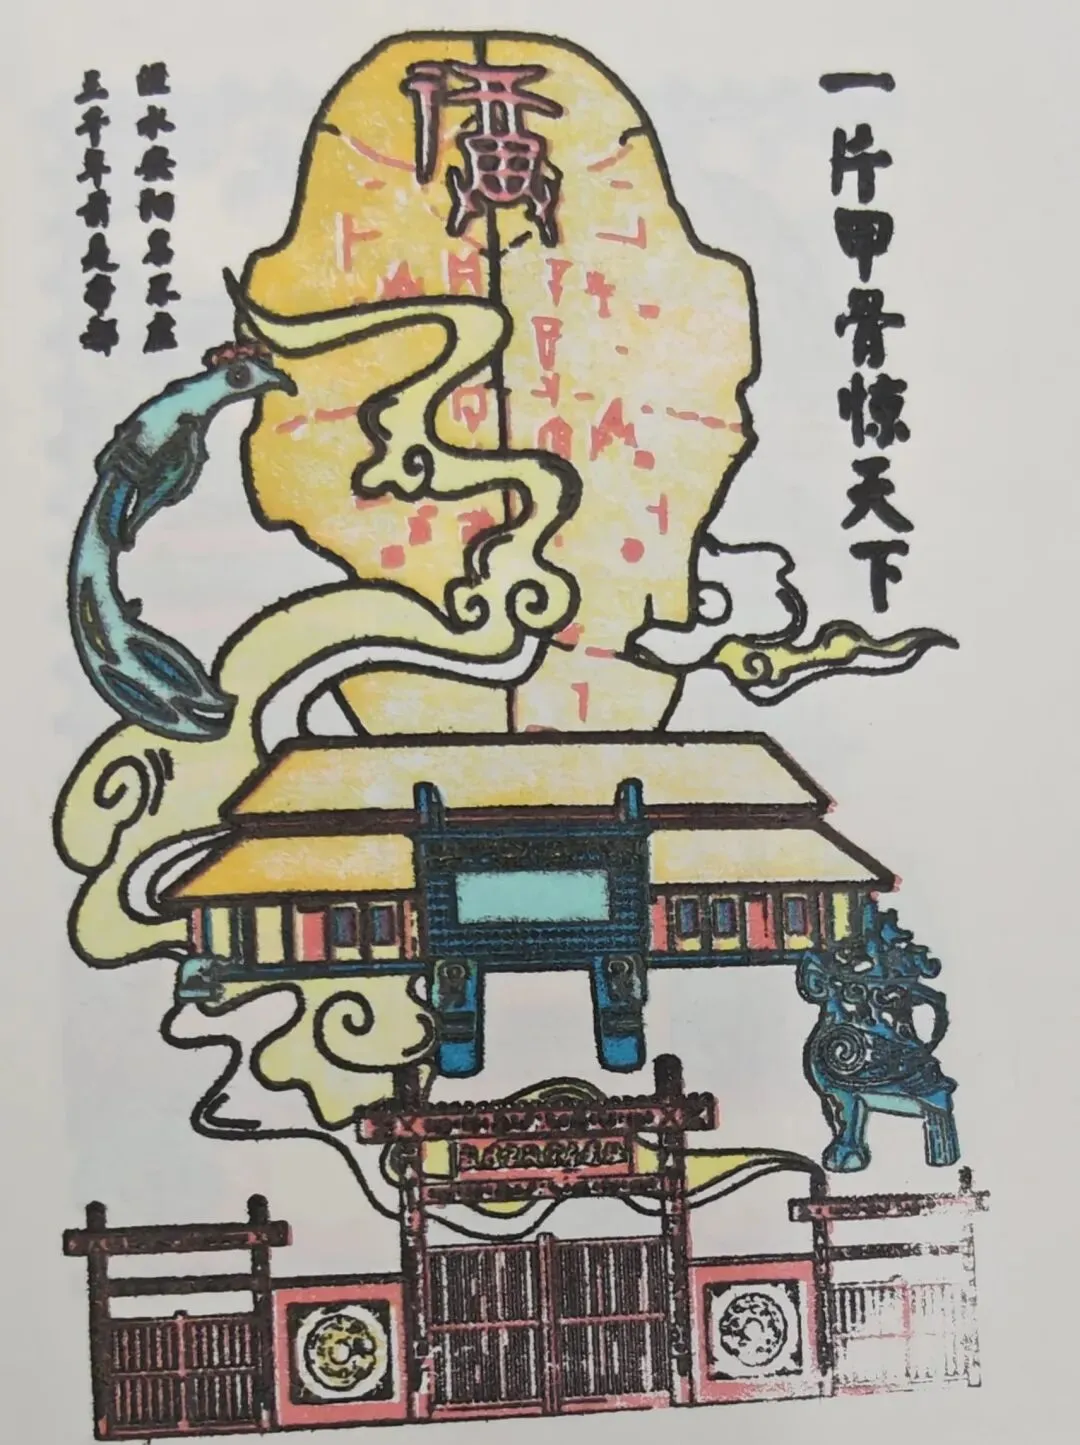 一片甲骨惊天下
洹水安阳名不虚
三千年前是帝都